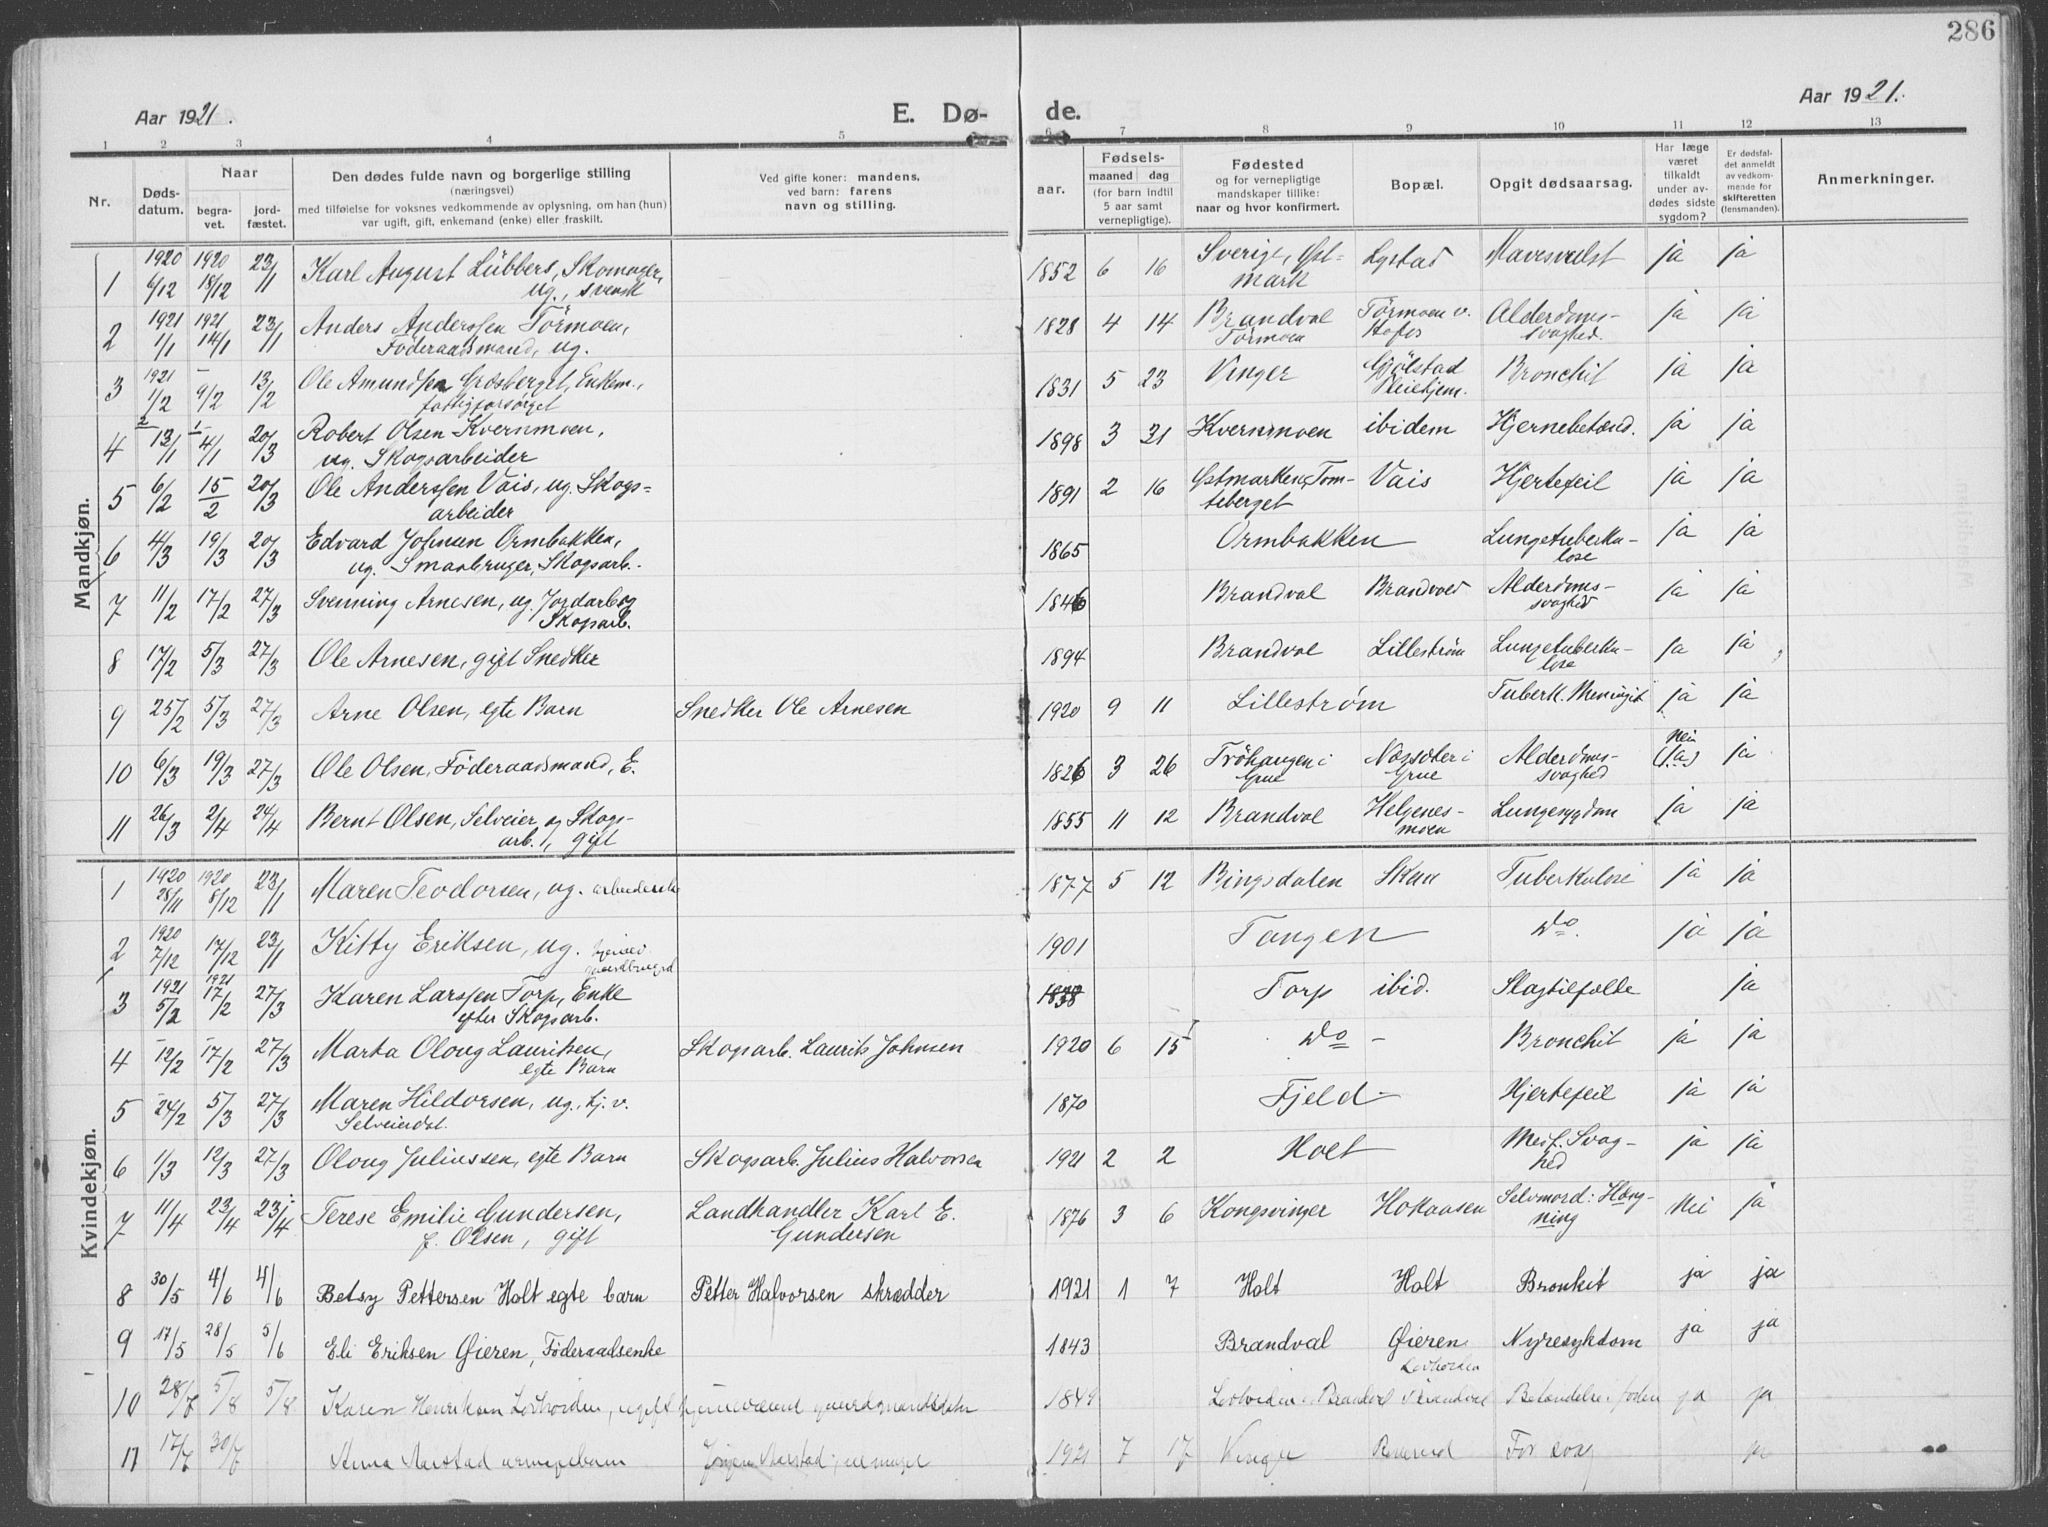 286
Aar 1921.
E. Dø-
de.
Aar 1921.
1 2 3 4 5 6 7 8 9 10 11 12 13
Nr.
Døds-
datum.
Naar
begra-
vet.
jord-
fæstet.
Den dødes fulde navn og borgerlige stilling
(næringsvei)
med tilføielse for voksnes vedkommende av oplysning, om han (hun)
var ugift, gift, enkemand (enke) eller fraskilt.
Ved gifte koner: mandens,
ved barn: farens
navn og stilling.
Fødsels-
aar.
maaned dag
(for barn indtil
5 aar samt
vernepligtige).
Fødested
og for vernepligtige
mandskaper tillike:
naar og hvor konfirmert.
Bopæl.
Opgit dødsaarsag.
Har læge
været
tilkaldt
under av-
dødes sidste
sygdom?
Er dødsfal-
det anmeldt
av vedkom-
mende for
skifteretten
(lensmanden).
Anmerkninger.
Mandkjøn.
1 1920 6/12 1920 18/12 23/1 Karl August Lübbers, Skomager, 1852 6 16 Sverige, Øst- Lystad Mavesvulst ja ja
ug., svensk mark
2 1921 1/1 1921 14/1 23/1 Anders Anderssen Törmoen, 1828 4 14 Brandvol Törmoen v. Alderdoms- ja ja
Föderaadsmand, ug. Törmoen Hofos svaghed.
3 1921 1/2 – 9/2 13/2 Ole Amundsen Græsberget, Enkem., 1831 5 23 Vinger Gjölstad Bronchit ja ja
fattigforsörget Pleiehjem.
4 13/1 4/1 20/3 Robert Olsen Kvernmoen, 1898 3 31 Kvernmoen ibidem Hjernebetænd. ja ja
ug. Skogsarbeider
5 6/2 15/2 20/3 Ole Anderssen Vais, ug. Skogs= 1891 2 16 Østmarken, Tom- Vais Hjertefeil ja ja
arbeider teberget
6 4/3 19/3 20/3 Edvard Johnsen Ormbakken, 1865 Ormbakken Lungetuberku- ja ja
ug. Smaabruger, Skogsarb. lose
7 11/2 17/2 27/3 Svenning Arnesen, ug. Jordarb. og 1846 Brandvol Brandvol Alderdoms- ja ja
Skogsarb. svaghed
8 17/2 5/3 27/3 Ole Arnesen, gift Snedker 1894 Brandvol Lillestrøm Lungetuberku- ja ja
lose
9 25/2 5/3 27/3 Arne Olsen, egte Barn Snedker Ole Arnesen 1920 9 11 Lillestrøm Tuberk. Meningit ja ja
10 6/3 19/3 27/3 Ole Olsen, Föderaadsmand, E. 1826 3 26 Fröhaugen i Næsseter i Alderdoms- Nei (ja) ja
Grue Grue svaghed
11 26/3 2/4 24/4 Bernt Olsen, Selveier og Skogs- 1855 11 12 Brandvol Helgenes- Lungesygdom ja ja
arb., gift moen
Kvindekjøn.
1 1920 28/11 1920 8/12 23/1 Maren Teodorsen, ug. arbeiderske 1877 5 12 Bingsdalen Skau Tuberkulose ja ja
2 1920 7/12 17/12 23/1 Kitty Eriksen, ug. 1901 Tangen Do. ja ja
3 1921 5/2 1921 17/2 27/3 Karen Larssen Torp, Enke 1838 Torp ibid. Slagtilfælde ja
efter Skogsarb.
4 – 12/2 – 17/2 27/3 Marta Oloug Lauritsen, Skogsarb. Laurits Johnsen 1920 6 15 Do – Bronchit ja ja
egte Barn
5 – 24/2 5/3 27/3 Maren Hildorsen, ug., hj. v. 1870 Fjeld – Hjertefeil ja ja
Selveierdat.
6 1/3 12/3 27/3 Oloug Juliussen, egte Barn Skogsarb. Julius Halvorsen 1921 2 2 Holt Medf. Svag- ja ja
hed
7 11/4 23/4 23/4 Terese Emilie Gundersen, Landhandler Karl E. 1876 3 6 Kongsvinger Hokaasen Selvmord: Hæng- Nei ja
f. Olsen, gift Gundersen ning
8 30/5 4/6 4/6 Betsy Pettersen Holt egte barn Petter Halvorsen skrædder 1921 1 7 Holt Holt Bronkit ja ja
9 17/5 28/5 5/6 Eli Eriksen Øieren, Föderaadsenke 1843 Brandval Øieren Nyresykdom ja ja
10 28/7 5/8 5/8 Karen Henriksen Lovhorden, ugift hjemmeværende gaardmandsdatter 1849 Brandvol Brandval ja ja
11 17/7 30/7 Anna Aarstad Aarstad 1921 7 17 Vinger For svag ja